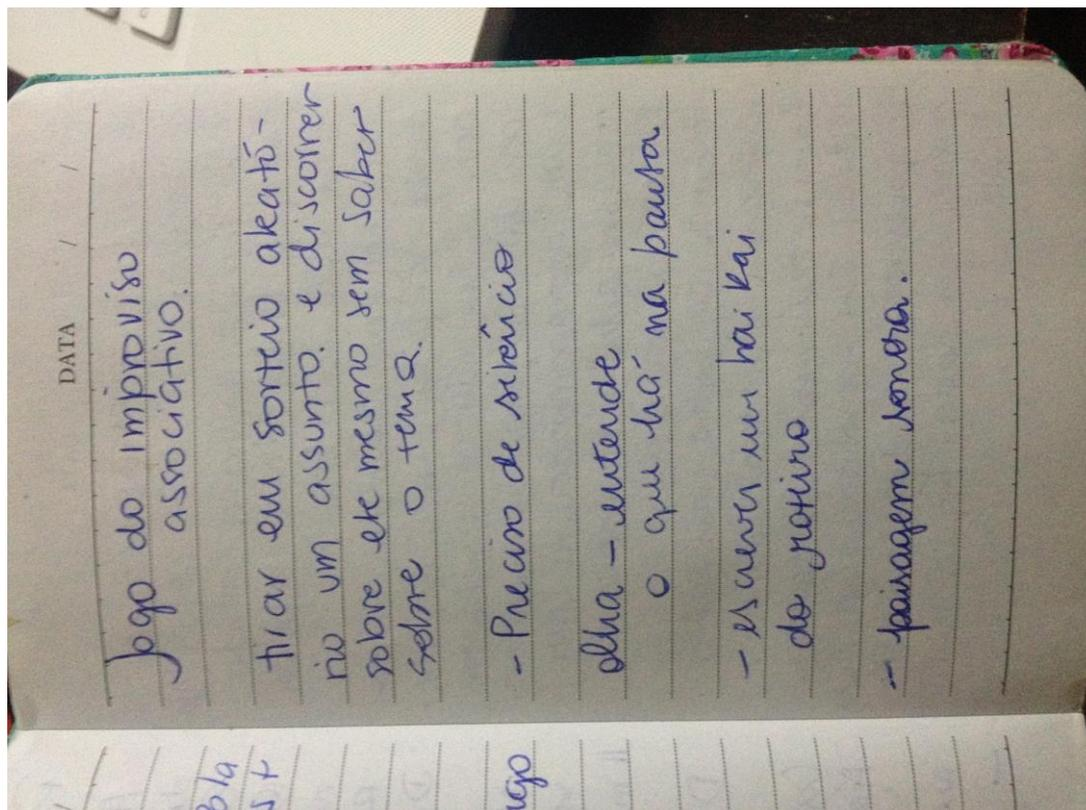 DATA / /
Jogo do improviso
associativo.
tirar em sorteio aleató-
rio um assunto. e discorrer
sobre ele mesmo sem saber
sobre o tema.
- Preciso de silêncio
olha - entende
o que há na pausa
- escrever um hai kai
do roteiro
- paisagem sonora.